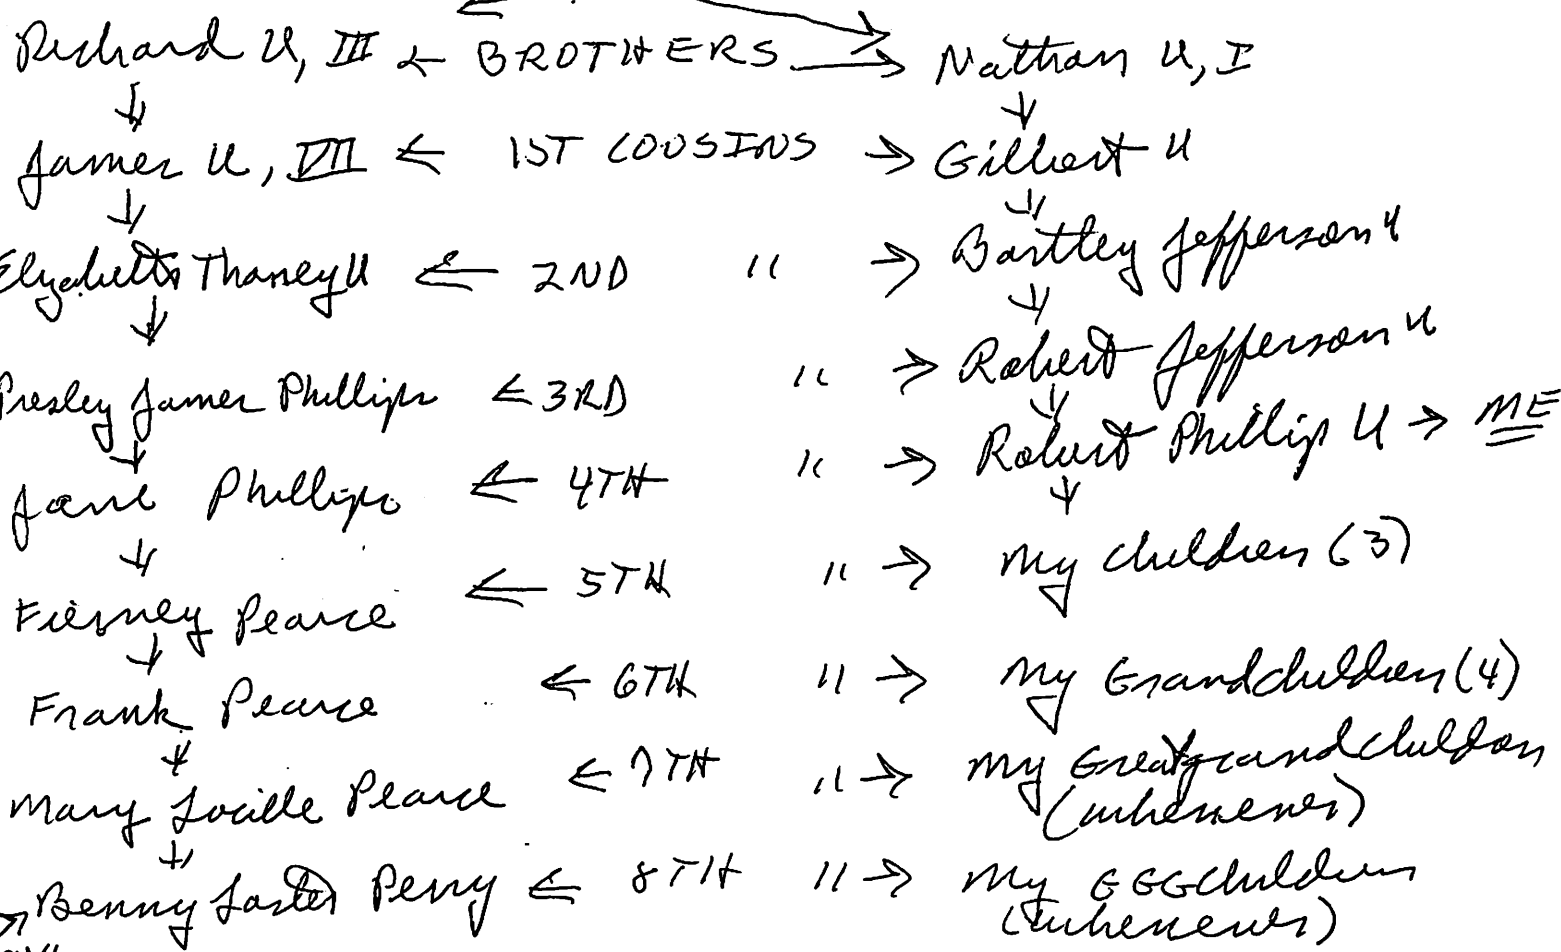 Richard U, III ← BROTHERS → Nathan U, I
James U, VII ← 1ST COUSINS → Gilbert U
Elizabeth Thaney U ← 2ND " → Bartley Jefferson U
Presley James Phillips ← 3RD " → Robert Jefferson U
Jane Phillips ← 4TH " → Robert Phillip U → ME
Pearce ← 5TH " → My Children (3)
Frank Pearce ← 6TH " → My Grandchildren (4)
Mary Lucille Pearce ← 7TH " → My Great grandchildren
(whenever)
Benny Perry ← 8TH " → My GGGchildren
(whenever)